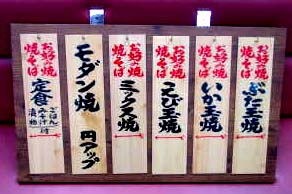 お好み焼
焼そば
ぶた玉焼
お好み焼
焼そば
いか玉焼
お好み焼
焼そば
えび玉焼
お好み焼
焼そば
ミックス焼
モダン焼 円アップ
お好み焼
焼そば
定食
ごはん
みそ汁
漬物
付